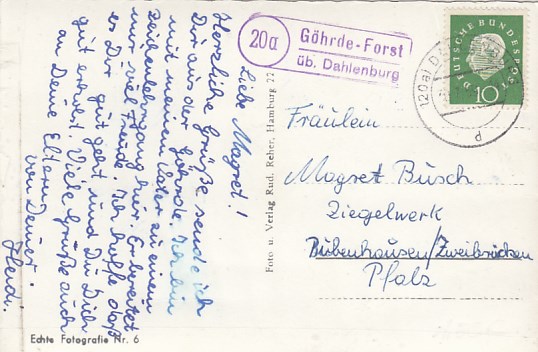 Liebe Magret!
Herzliche Grüße sende ich
Dir aus der Göhrde. Ich bin
mit meinem Vater zu einem
Zeichenlehrgang hier. Er bereitet
mir viel Freude. Ich hoffe daß
es Dir gut geht und Du Dich
gut erholst. Viele Grüße auch
an Deine Eltern
von Deiner
Heidi.
Echte Fotografie Nr. 6
Foto u. Verlag Rud. Reher, Hamburg 22
20a
Göhrde-Forst
üb. Dahlenburg
DEUTSCHE BUNDESPOST
10
(20a) D
d
Fräulein
Magret Busch
Ziegelwerk
Bubenhausen/Zweibrücken
Pfalz